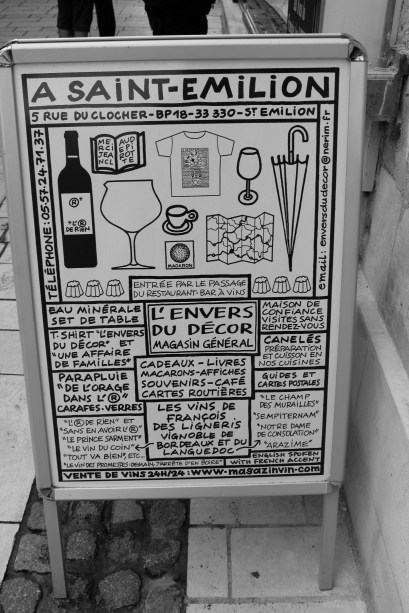 A SAINT-EMILION
5 RUE DU CLOCHER-BP18-33 330-ST EMILION
TÉLÉPHONE: 05.57.24.71.37
email: enversdudecor@nerim.fr
MERCI JEAN CL
AUDE PIROTTE
"R"
"L'®
DE RIEN
MACARON
ENTRÉE PAR LE PASSAGE
DU RESTAURANT-BAR À VINS
EAU MINÉRALE
SET DE TABLE
T-SHIRT "L'ENVERS
DU DÉCOR" ET
"UNE AFFAIRE
DE FAMILLES"
PARAPLUIE
"DE L'ORAGE
DANS L'®"
CARAFES-VERRES
"L'® DE RIEN" ET
"SANS EN AVOIR L'®"
"LE PRINCE SARMENT"
"LE VIN DU COIN"
"TOUT VA BIEN", ETC..
"LE VIN DES PROMESSES: DEMAIN J'ARRÊTE D'EN BOIRE"
L'ENVERS
DU DÉCOR
MAGASIN GÉNÉRAL
CADEAUX-LIVRES
MACARONS-AFFICHES
SOUVENIRS-CAFÉ
CARTES ROUTIÈRES
LES VINS DE
FRANÇOIS
DES LIGNERIS
VIGNOBLE DE
BORDEAUX ET DU
LANGUEDOC
MAISON DE
CONFIANCE
VISITES SANS
RENDEZ-VOUS
CANELÉS
PRÉPARATION
ET CUISSON EN
NOS CUISINES
GUIDES ET
CARTES POSTALES
"LE CHAMP
DES MURAILLES"
"SEMPITERNAM"
"NOTRE DAME
DE CONSOLATION"
"ARAZIME"
ENGLISH SPOKEN
WITH FRENCH ACCENT
VENTE DE VINS 24H/24: www.magazinvin.com